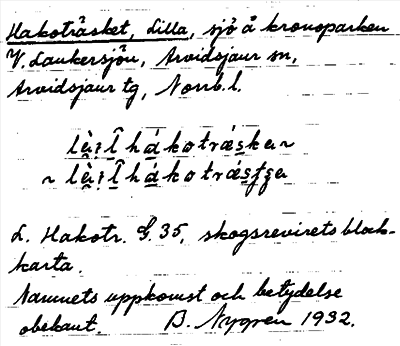 Hakoträsket, Lilla, sjö å kronoparken
V. Laukersjön, Arvidsjaur sn,
Arvidsjaur tg, Norrb. l.
lὰ̀ı̣l̂ hákoträ́skan
~ lὰ̀ı̣l̂ hákoträ́sʈʂa
L. Hakotr. G. 35, skogsrevirets block-
karta.
Namnets uppkomst och betydelse
obekant. B. Nygren 1932.